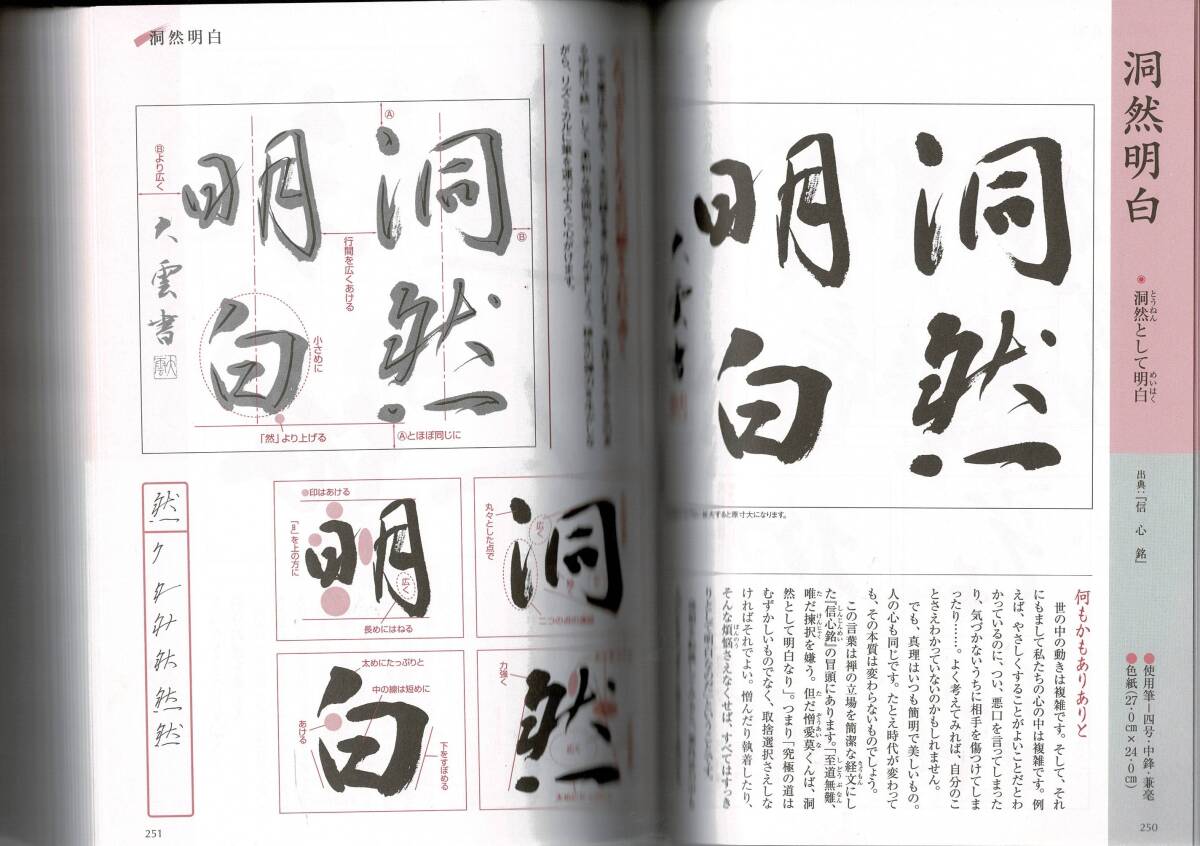 洞然明白
●洞然として明白
とうねん
めいはく
出典：『信心銘』
●使用筆－四号・中鋒・兼毫
●色紙（27・0㎝×24・0㎝）
洞然
明白
大すると原寸大になります。
何もかもありありと
世の中の動きは複雑です。そして、それ
にもまして私たちの心の中は複雑です。例
えば、やさしくすることがよいことだとわ
かっているのに、つい、悪口を言ってしまった
り、気づかないうちに相手を傷つけてしま
ったり……。よく考えてみれば、自分のこ
とさえわかっていないのかもしれません。
でも、真理はいつも簡明で美しいもの。
人の心も同じです。たとえ時代が変わって
も、その本質は変わらないものでしょう。
この言葉は禅の立場を簡潔な経文にし
た『信心銘』の冒頭にあります。「至道無難、
唯だ揀択を嫌う。但だ憎愛莫くんば、洞
然として明白なり」。つまり「究極の道は
むずかしいものでなく、取捨選択さえしな
ければそれでよい。憎んだり執着したり、
そんな煩悩さえなくせば、すべてはすっき
りとして明白なのだ」ということです。
250
洞然明白
がら、リズミカルに筆を運ぶように心がけます。
洞然
明白
大雲書
Ⓐ
Ⓑ
Ⓑより広く
行間を広くあける
小さめに
「然」より上げる
Ⓐとほぼ同じに
洞
丸々とした点で
広く
明
●印はあける
「日」を上の方に
広く
長めにはねる
然
力強く
白
太めにたっぷりと
中の線は短めに
あける
下をすぼめる
然
然
251